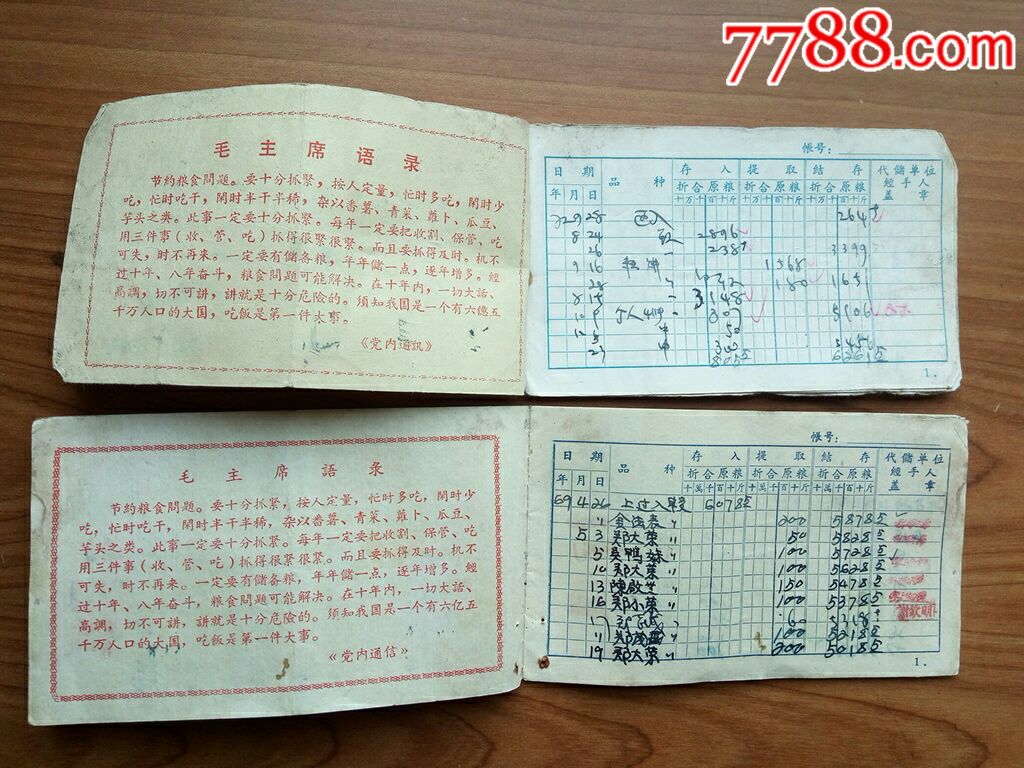 7788.com
毛主席语录
节约粮食問題。要十分抓紧，按人定量，忙时多吃，閑时少
吃，忙时吃干，閑时半干半稀，杂以番薯、青菜、蘿卜、瓜豆、
芋头之类。此事一定要十分抓紧。每年一定要把收割、保管、吃
用三件事（收、管、吃）抓得很紧很紧。而且要抓得及时。机不
可失，时不再来。一定要有儲备粮，年年儲一点，逐年增多。經
过十年、八年奋斗，粮食問題可能解决。在十年内，一切大話、
高調，切不可講，講就是十分危險的。须知我国是一个有六億五
千万人口的大国，吃飯是第一件大事。
《党内通訊》
帳号：
日期 品种 存入 提取 结存 代儲单位
年月日 折合原粮 折合原粮 折合原粮 經手人
十万千百十斤 十万千百十斤 十万千百十斤 盖章
28 264
8 24 2896
26 238 3399
9 16 1568
28 180 1651
3148
307 5106
50
5 300 3456
8055
1.
毛主席語录
节约粮食問題。要十分抓紧，按人定量，忙时多吃，閑时少
吃，忙时吃干，閑时半干半稀，杂以番薯、青菜、蘿卜、瓜豆、
芋头之类。此事一定要十分抓紧。每年一定要把收割、保管、吃
用三件事（收、管、吃）抓得很紧很紧。而且要抓得及时。机不
可失，时不再来。一定要有儲备粮，年年儲一点，逐年增多。經
过十年、八年奋斗，粮食問題可能解决。在十年内，一切大話、
高調，切不可讲，讲就是十分危险的。须知我国是一个有六亿五
千万人口的大国，吃飯是第一件大事。
《党内通信》
帳号：
日期 品种 存入 提取 结存 代儲单位
年月日 折合原粮 折合原粮 折合原粮 經手人
十萬千百十斤 十萬千百十斤 十萬千百十斤 盖章
69 4 26 上过入 6078
〃 〃 200 5878
5 3 郑大荣 〃 50 5828
5 吴鴨妹 〃 100 5728
10 郑大荣 〃 100 5628
13 陳啟芝 〃 150 5478
16 郑小荣 〃 100 5378
17 60 5318
〃 郑 〃 100 5218
19 郑大荣 〃 200 5018
1.